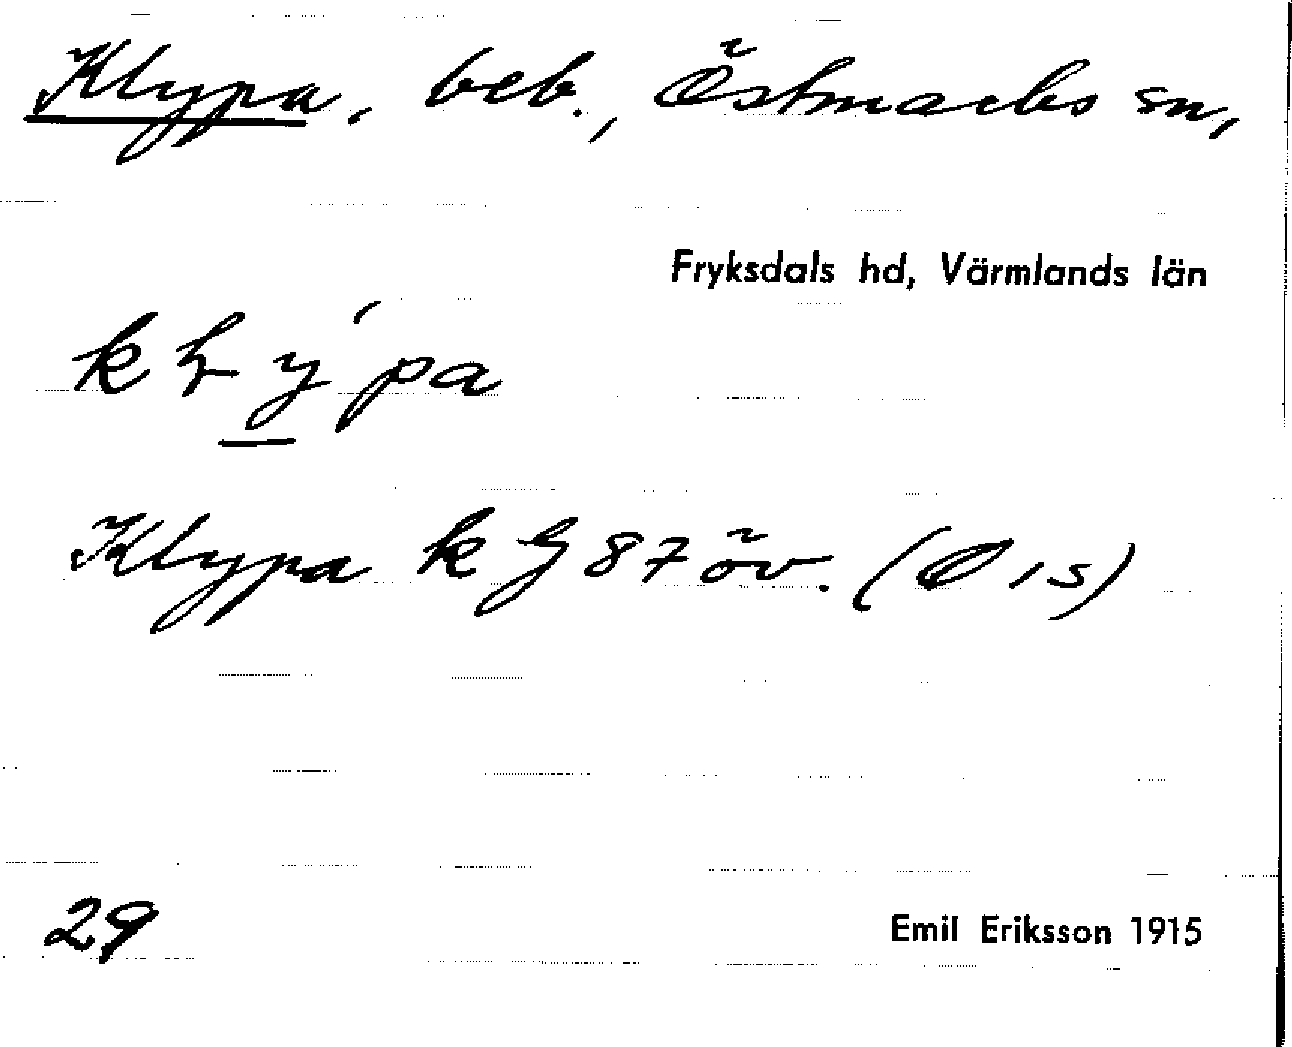 Klypa, beb., Östmarks sn,
Fryksdals hd, Värmlands län
kɫý̱pa
Klypa k ʃ 87 öv. (O 15)
29
Emil Eriksson 1915